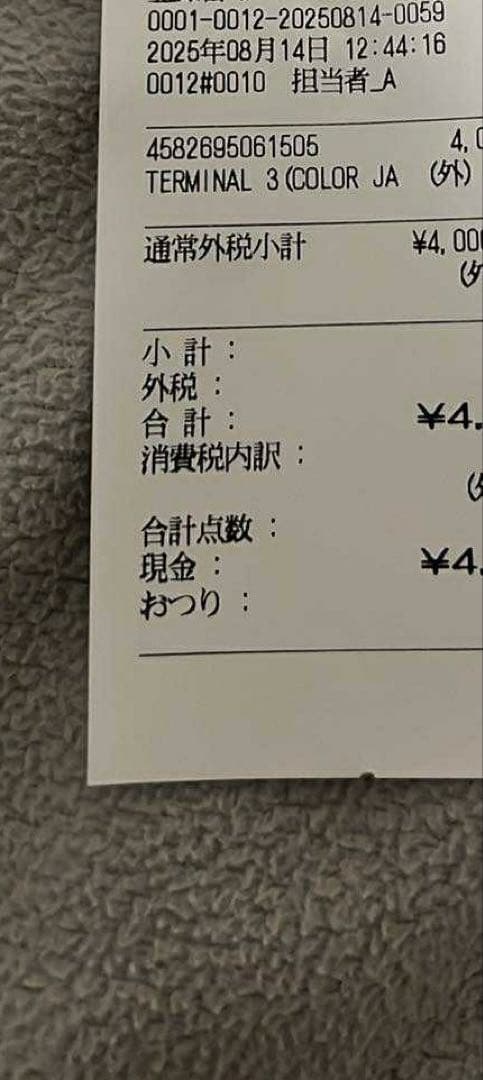 0001-0012-20250814-0059
2025年08月14日 12:44:16
0012#0010 担当者_A
4582695061505 4,0
TERMINAL 3(COLOR JA (外)
通常外税小計 ¥4,000
(外
小 計 :
外税 :
合 計 : ¥4,
消費税内訳 :
(外
合計点数 :
現金 : ¥4,
おつり :